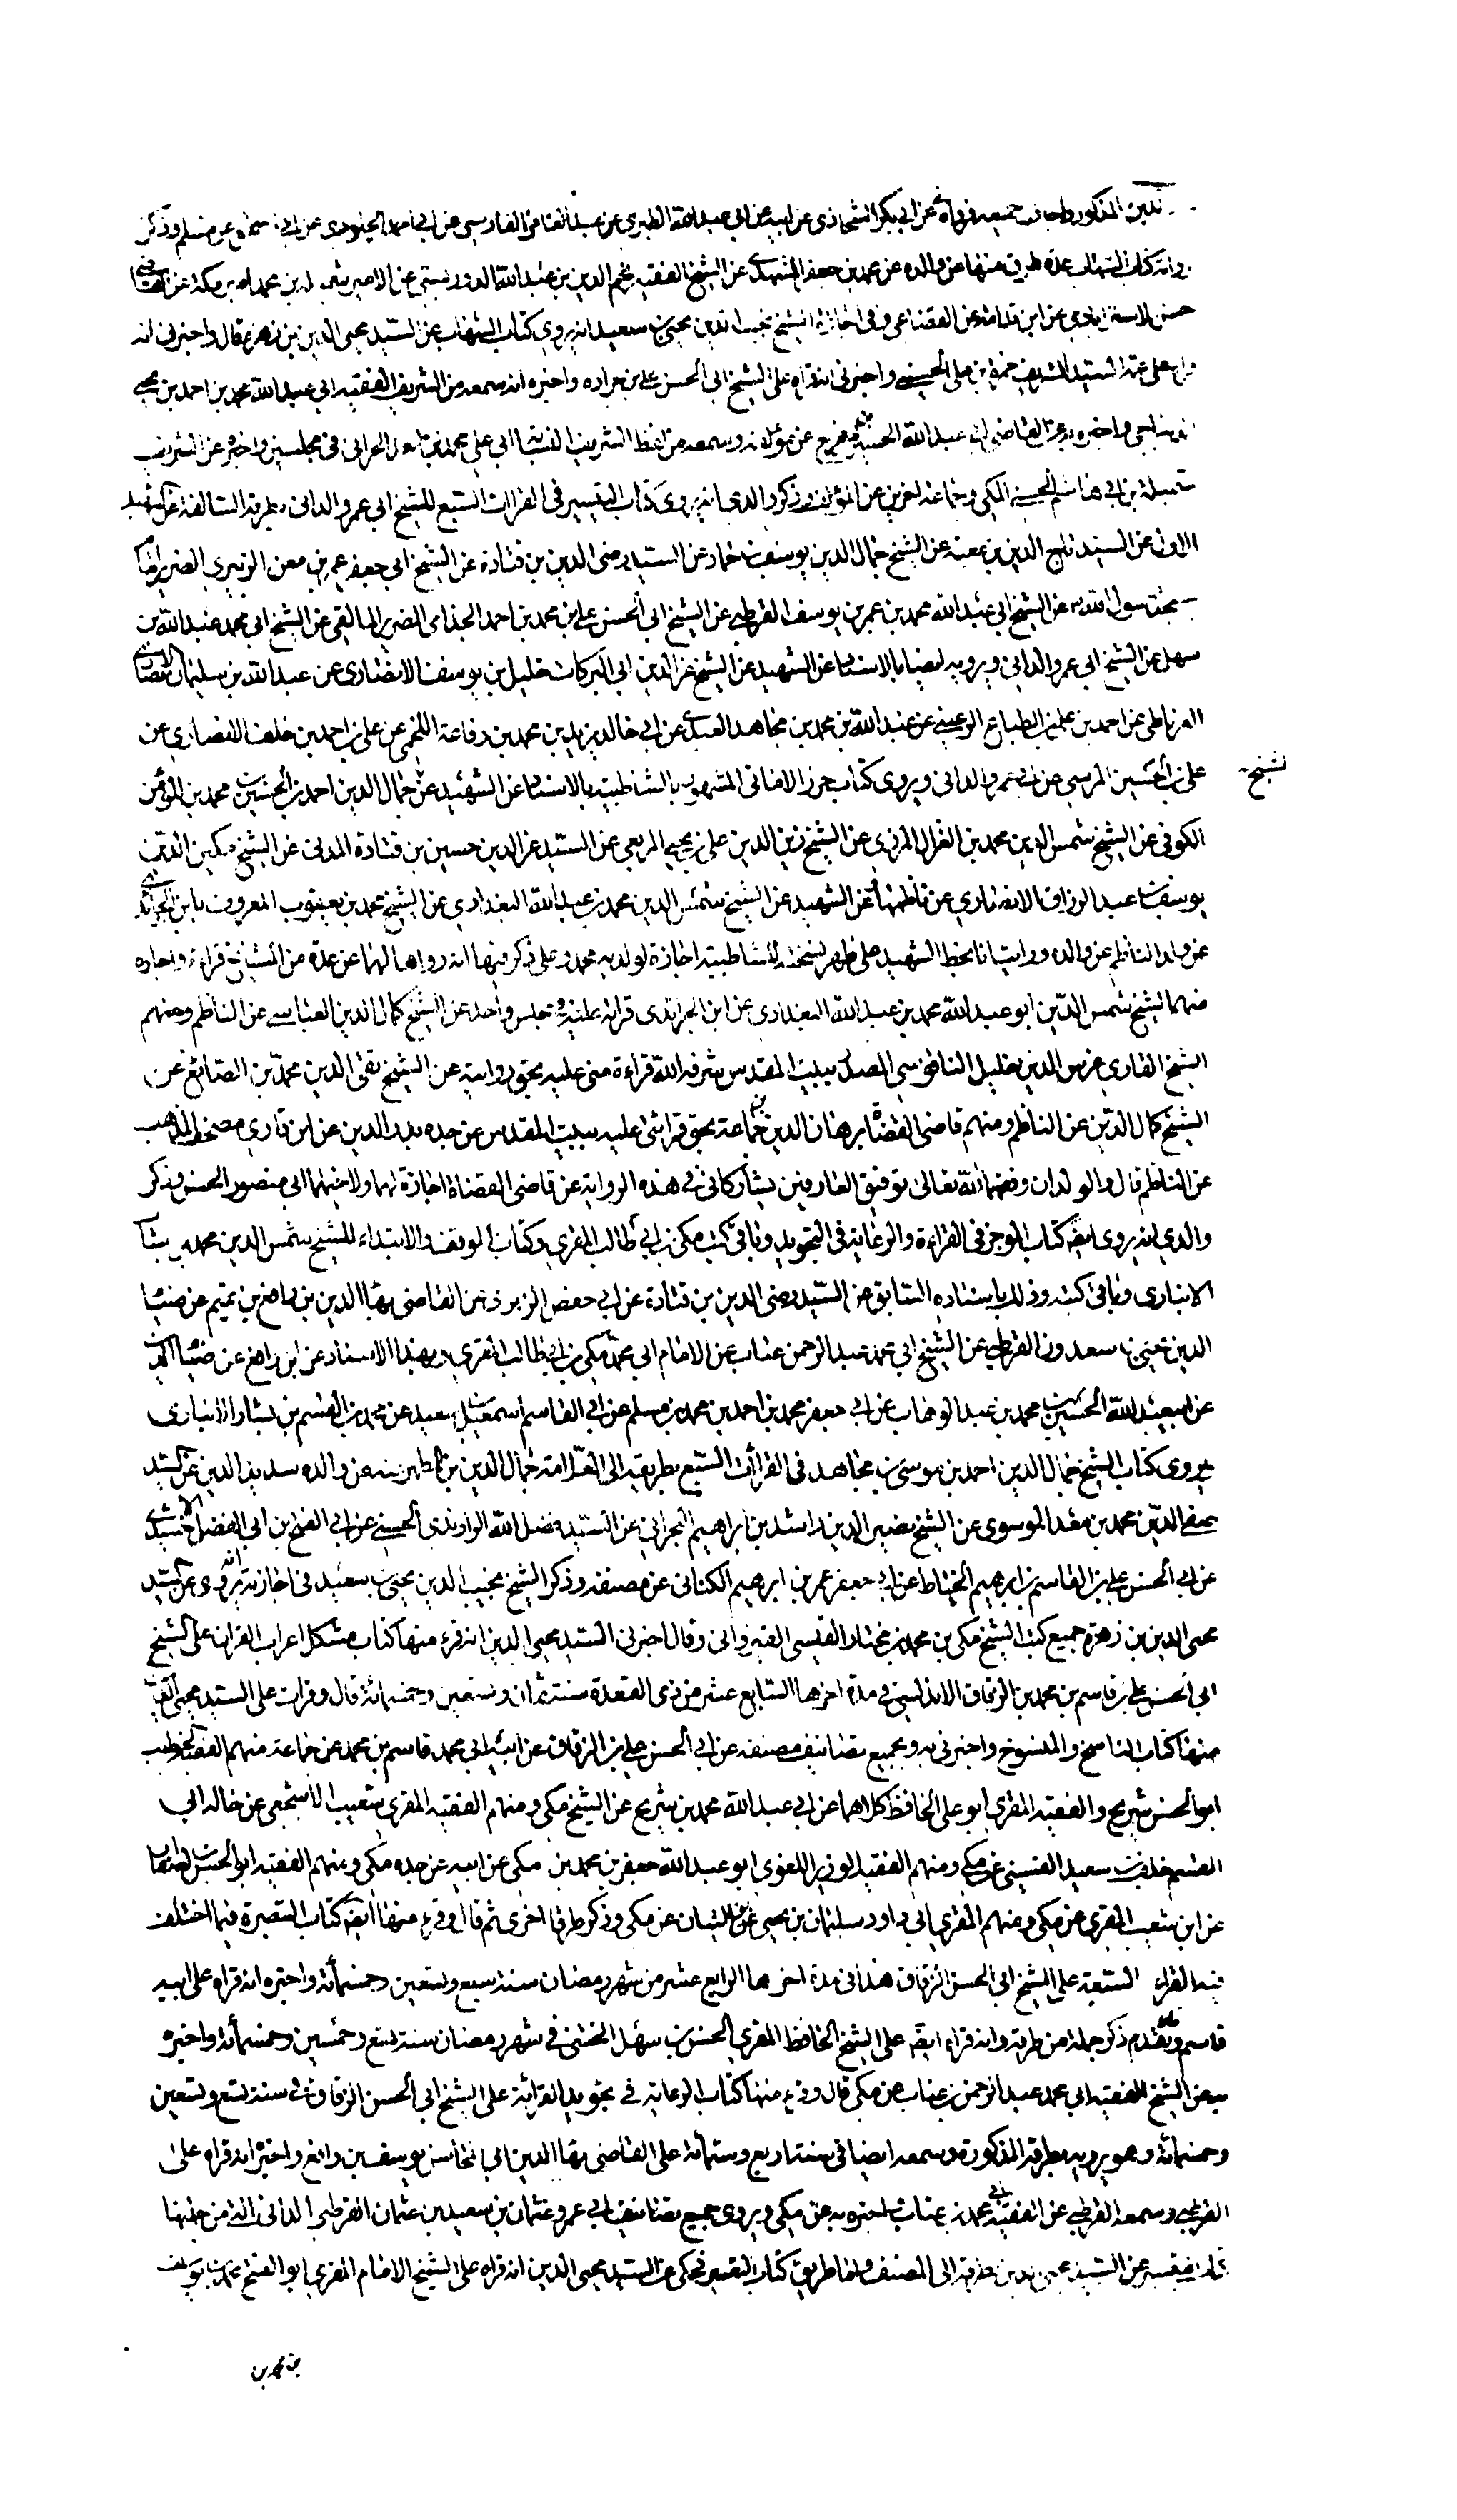 الدين المذكور واجازه جميعه قراءة عن ابي بكر الشحاذي عن ابيه عن ابي عبد الله الطبري عن عبد الغافر الفارسي عن ابي احمد الجلودي عن ابي اسحق عن مسلم وذكر
رواية كتاب الشهاب عدة طرق منها عن والده عن محمد بن جعفر المشهدي عن الشيخ الفقيه نجم الدين بن عبد الله الدوريستي عن الامير
حسن الاسترابادي عن ابن قدامة عن القضاعي وفي اجازة الشيخ نجيب الدين يحيى بن سعيد انه يروي كتاب الشهاب عن السيد محيي الدين بن زهرة قال واخبرني انه
قراه على عمه السيد الشريف حمزة بن علي الحسيني واخبرني انه قراه على الشيخ ابي الحسن علي بن جرادة واخبره انه سمعه من الشريف الفقيه ابي عبد الله محمد بن احمد بن
واخبره به عن القاضي ابي عبد الله الحسين بن مفرج عن مؤلفه وسمعه من لفظ الشريف النسابة ابي علي محمد بن اسعد الحراني في مجلسين واخبره عن الشريف
بن ابي هاشم الحسيني المكي وجماعة اخرين عن المؤلف وذكر والدي انه يروي كتاب التيسير في القراات السبع للشيخ ابي عمرو الداني بطرقه السالفة عن الشهيد
الاول عن السيد تاج الدين بن معية عن الشيخ جمال الدين يوسف بن حماد عن السيد رضى الدين بن قتادة عن الشيخ ابي جعفر عمر بن معن الزبيري الضرير امام
مسجد رسول الله ص عن الشيخ ابي عبد الله محمد بن عمر بن يوسف القرطبي عن الشيخ ابي الحسن علي بن محمد بن احمد الجذامي الضرير المالقي عن الشيخ ابي محمد عبد الله بن
سهل عن الشيخ ابي عمرو الداني ويرويه ايضا بالاسناد عن الشهيد عن الشيخ عز الدين ابي البركات خليل بن يوسف الانصاري عن عبد الله بن سليمان الانصاري
الغرناطي عن احمد بن علي بن الطباع الرعيني عن عبد الله بن محمد بن مجاهد العبدي عن ابي خالد يزيد بن محمد بن رفاعة اللخمي عن علي بن احمد بن خلف الانصاري عن
علي بن الحسين المرسي عن ابي عمرو الداني ويروي كتاب حرز الاماني المشهور بالشاطبية بالاسناد عن الشهيد عن الشيخ جمال الدين احمد بن الحسين بن محمد بن المؤمن
الكوفي عن الشيخ شمس الدين محمد بن الغزال المضري عن الشيخ زين الدين علي بن يحيى المربعي عن السيد عز الدين حسين بن قتادة المدني عن الشيخ مكين الدين
يوسف بن عبد الرزاق الانصاري عن ناظمها وعن الشهيد عن الشيخ شمس الدين محمد بن عبد الله البغدادي عن الشيخ محمد بن يعقوب المعروف بابن الجرائدي
عن ولد الناظم عن والده ورايت انا بخط الشهيد على ظهر نسخته للشاطبية اجازة لولديه محمد وعلي ذكر فيها انه رواها لهما عن عدة من المشايخ قراءة واجازة
منهم الشيخ شمس الدين ابو عبد الله محمد بن عبد الله البغدادي عن ابن الجرائدي قراءة عليه في مجلس واحد عن الشيخ كمال الدين العباسي عن الناظم ومنهم
الشيخ القاري غرس الدين خليل الناقوسي المصلي ببيت المقدس شرفه الله قراءة مني عليه بحق روايته عن الشيخ تقي الدين محمد بن الصائغ عن
الشيخ كمال الدين عن الناظم ومنهم قاضى القضاة برهان الدين بن جماعة بحق قراءتي عليه ببيت المقدس عن جده بدر الدين عن ابن قاري مصحف الذهب
عن الناظم قال والولدان وفقهما الله تعالى توفيق العارفين يشاركاني في هذه الرواية عن قاضى القضاة اجازة لهما ولاختهما ام الحسن وذكر
والدي انه يروي ايضا كتاب الموجز في القراءة والرعاية في التجويد وباقي كتب مكي بن ابي طالب المقري وكتاب الوقف والابتداء للشيخ شمس الدين محمد بن بشار
الانباري وباقي كتبه وذلك باسناده السابق عن السيد رضى الدين بن قتادة عن ابي حفص الزبري عن القاضى بهاء الدين بن رافع بن تميم عن ضياء
الدين يحيى بن سعدون القرطبي عن الشيخ ابي محمد عبد الرحمن عتاب عن الامام ابي محمد مكي بن ابي طالب المقري وبهذا الاسناد عن ابن رافع عن ضياء الدين
عن ابي عبد الله الحسين بن محمد بن عبد الوهاب عن ابي جعفر محمد بن احمد بن محمد بن مسلم عن ابي القاسم اسمعيل بن سعيد عن محمد بن القسم بن بشار الانباري
ويروي كتاب الشيخ جمال الدين احمد بن موسى بن مجاهد في القراات السبع بطريقه الى العلامة جمال الدين بن المطهر منه عن والده سديد الدين عن السيد
صفي الدين محمد بن معد الموسوي عن الشيخ نصير الدين راشد بن ابراهيم البحراني عن السيد فضل الله الراوندي الحسيني عن ابي الفتح بن ابي الفضل الاخشيدي
عن ابي الحسن علي بن القاسم بن ابراهيم الخياط عن ابي جعفر عمر بن ابرهيم الكتاني عن مصنفه وذكر الشيخ نجيب الدين يحيى بن سعيد في اجازته انه يروي عن السيد
محيي الدين بن زهرة جميع كتب الشيخ مكي بن محمد بن مختار القيسي القيرواني وقال اخبرني السيد محيي الدين انه قرء منها كتاب مشكل اعراب القران على الشيخ
ابي الحسن علي بن قاسم بن محمد بن الزقاق الاندلسي في مدة اخرها السابع عشر من ذي القعدة سنة ثمان وتسعين وخمسمائة قال وقرات على السيد محيي الدين
منها كتاب الناسخ والمنسوخ واخبرني به وبجميع تصانيف مصنفه عن ابي الحسن علي بن الزقاق عن ابيه ابي محمد قاسم بن محمد عن جماعة منهم الفقيه الخطيب
ابو الحسن شريح والفقيه المقري ابو علي الحافظ كلاهما عن ابي عبد الله محمد بن شريح عن الشيخ مكي ومنهم الفقيه المقري شعيب الاشجعي عن خاله ابي
القسم خلف بن سعيد القيسي عن مكي ومنهم الفقيه الوزير اللغوي ابو عبد الله جعفر بن محمد بن مكي عن ابيه عن جده مكي ومنهم الفقيه ابو الحسن
عن ابن شعيب المقري عن مكي ومنهم المقري ابي داود سليمان بن يحيى عن ابن البيان عن مكي وذكر طرقا اخرى ثم قال وقرء منها ايضا كتاب التبصرة فيما اختلف
فيه القراء السبعة على الشيخ ابي الحسن الزقاق هذا في مدة اخرها الرابع عشر من شهر رمضان سنة سبع وتسعين وخمسمائة واخبره انه قراه على ابيه
قاسم وتقدم ذكر جملة من طرقه وانه قراه ايضا على الشيخ الحافظ المقري الحسن بن سهل الخشني في شهر رمضان سنة تسع وخمسين وخمسمائة واخبره
به عن الشيخ الفقيه ابي محمد عبد الرحمن بن عتاب عن مكي قال وقرء منها كتاب الرعاية في تجويد القرائة على الشيخ ابي الحسن الزقاق في سنة تسع وتسعين
وخمسمائة وهو يرويه بطرقه المذكورة وسمعه ايضا في سنة اربع وستمائة على القاضي بهاء الدين ابي المحاسن يوسف بن رافع واخبره انه قراه على
القرطبي وسمعه القرطبي عن الفقيه ابي محمد بن عتاب واخبره به عن مكي ويروي جميع تصانيف ابي عمرو عثمان بن سعيد بن عثمان القرطبي الداني التي من جملتها
التيسير عن السيد محيي الدين بطرقه الى المصنف واما طريق كتاب التيسير فحكى عن السيد محيي الدين انه قراه على الشيخ الامام المقري ابو الفتح محمد بن يوسف
بن محمد بن